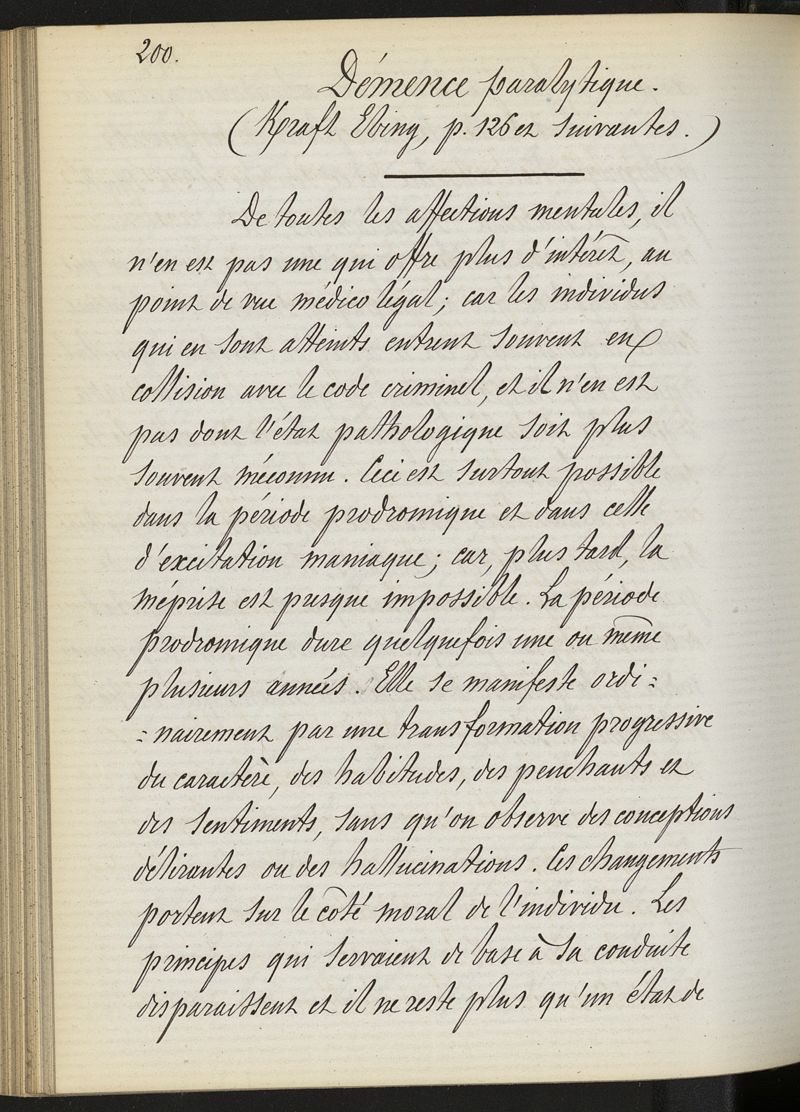 200.
Démence paralytique.
(Kraft Ebing, p. 126 et suivantes.)
De toutes les affections mentales, il
n'en est pas une qui offre plus d'intérêt, au
point de vue médico légal; car les individus
qui en sont atteints entrent souvent en
collision avec le code criminel, et il n'en est
pas dont l'état pathologique soit plus
souvent méconnu. Ceci est surtout possible
dans la période prodromique et dans celle
d'excitation maniaque; car, plus tard, la
méprise est presque impossible. La période
prodromique dure quelquefois une ou même
plusieurs années. Elle se manifeste ordi=
=nairement par une transformation progressive
du caractère, des habitudes, des penchants et
des sentiments, sans qu'on observe des conceptions
délirantes ou des hallucinations. Ces changements
portent sur le côté moral de l'individu. Les
principes qui servaient de base à sa conduite
disparaissent et il ne reste plus qu'un état de